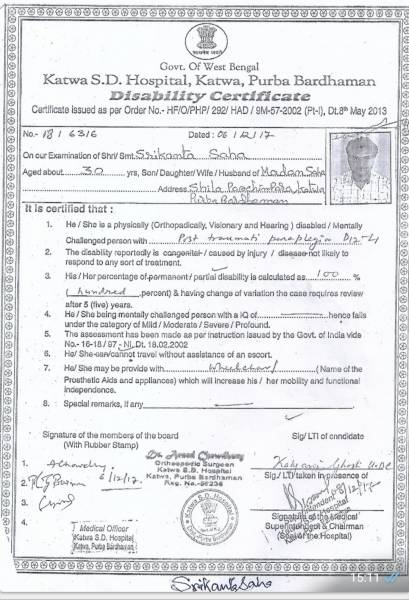 Govt. Of West Bengal
Katwa S.D. Hospital, Katwa, Purba Bardhaman
Disability Certificate
Certificate issued as per Order No.- HF/O/PHP/ 292/ HAD / 9M-57-2002 (Pt-I), Dt.8th May 2013
No.- 18/6316 Dated : 06/12/17
On our Examination of Shri/ Smt. Srikanta Saha
Aged about 30 yrs, Son/ Daughter/ Wife / Husband of Madan Saha
Address
Katwa
Purba Bardhaman
It is certified that :
1. He / She is a physically (Orthopadically, Visionary and Hearing ) disabled / Mentally
Challenged person with Post traumati paraplegia D12-L1
2. The disability reportedly is congenital / caused by injury / disease not likely to
respond to any sort of treatment.
3. His / Her percentage of permanent / partial disability is calculated as 100 %
( hundred percent) & having chance of variation the case requires review
after 5 (five) years.
4. He / She being mentally challenged person with a IQ of hence fails
under the category of Mild / Moderate / Severe / Profound.
5. The assessment has been made as per instruction issued by the Govt. of India vide
No.- 16-18 / 97 - NI. Dt. 18.02.2002
6. He/ She can/cannot travel without assistance of an escort.
7. He / She may be provided with Wheelchair ( Name of the
Prosthetic Aids and appliances) which will increase his / her mobility and functional
independence.
8. Special remarks, if any
Signature of the members of the board
(With Rubber Stamp)
Sig/ LTI of candidate
1.
2. 6/12/17
3.
4.
Orthopaedic Surgeon
Katwa S.D. Hospital
Katwa, Purba Bardhaman
Reg. No.-56236
Medical Officer
Katwa S.D. Hospital
Katwa, Purba Bardhaman
Sig./ LTI taken in presence of
Signature of the Medical
Superintendent & Chairman
(Seal of the Hospital)
15:11
Srikanta Saha